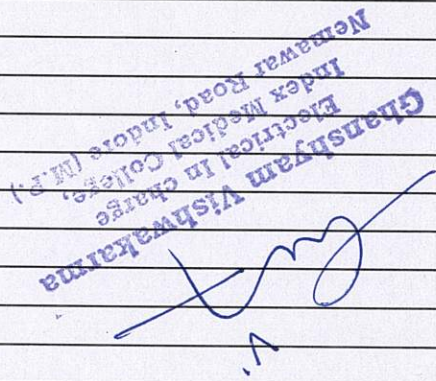 Ghanshyam Vishwakarma
Electrical In charge
Index Medical College,
Nemawar Road, Indore (M.P.)